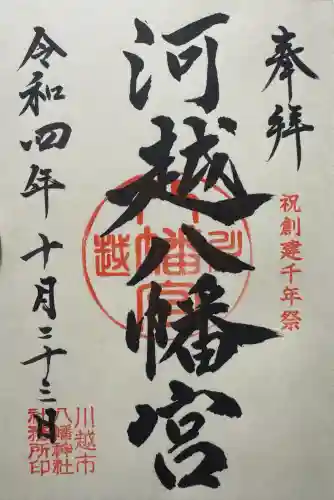 奉拝
祝創建千年祭
河越八幡宮
令和四年十月二十三日
川越市
八幡神社
社務所印